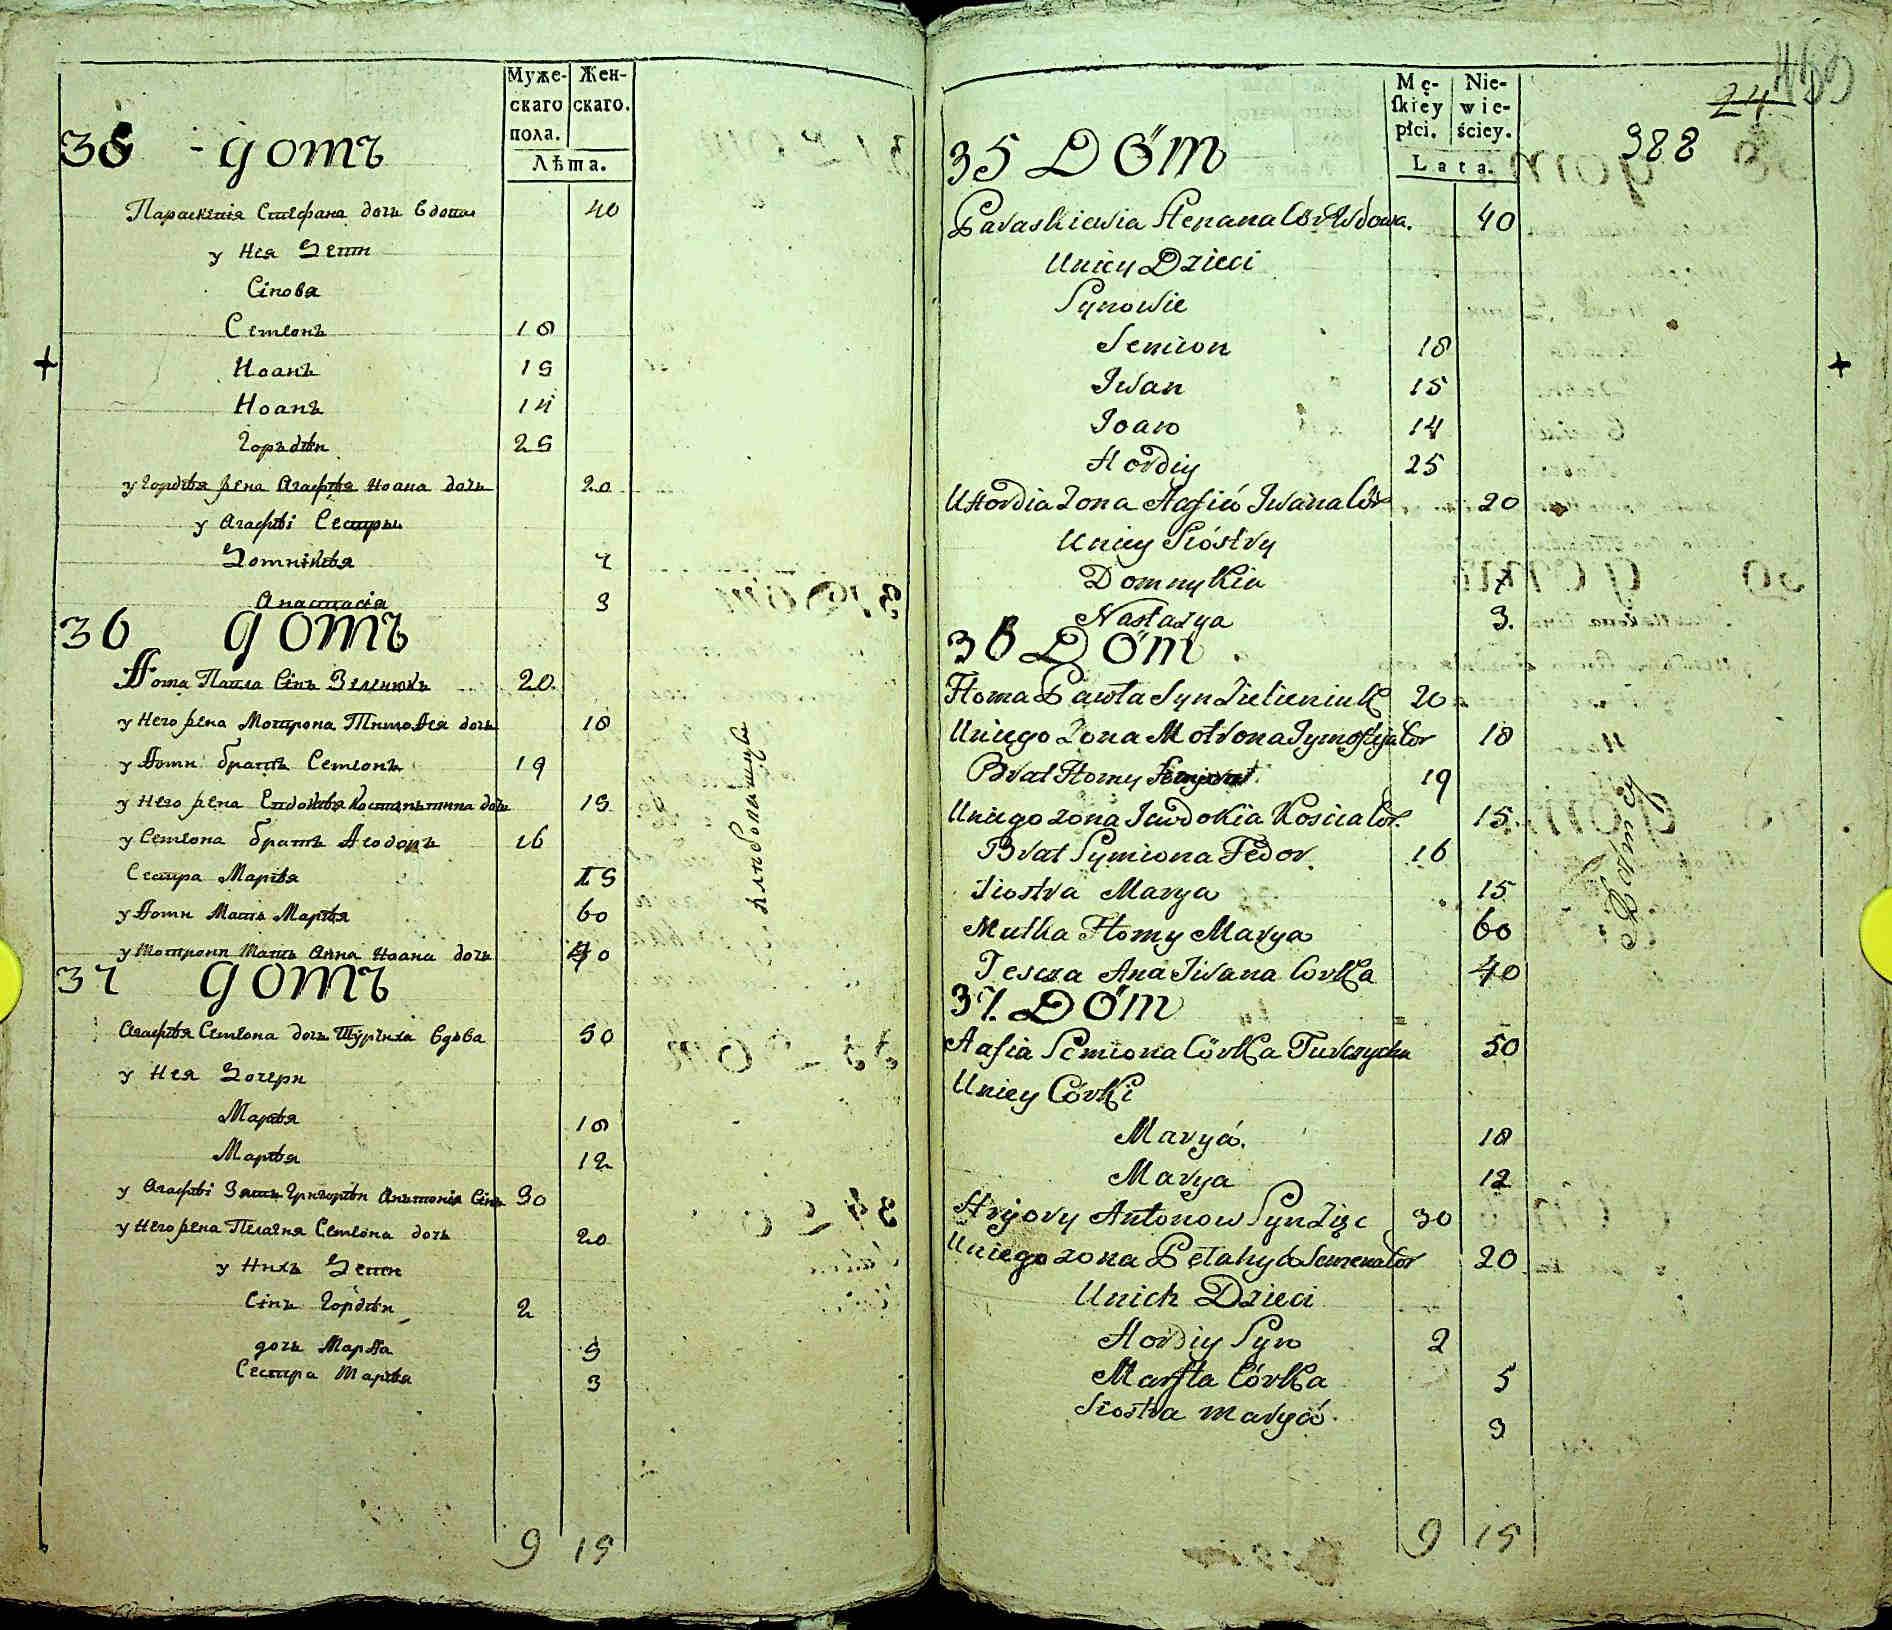 Муже-
скаго
пола.
Жен-
скаго.
Лѣта.
35 - домъ
Параскевія Стефана дочь вдова 40
у Нея Дети
Сінове
Семіонъ 18
Иоанъ 15
Иоанъ 14
Горъдѣи 25
у Гордѣя жена Агафія Иоана дочь 20
у Агафіі Сестры
Домнікія 7
Анастасія 3
36 домъ
Ѳома Павла Сінъ Зеленюкъ 20
у Него жена Мотрона Тимоѳея дочь 18
у Ѳоми братъ Семіонъ 19
у Него жена Евдокія Костанътина дочь 15
у Семіона братъ Ѳеодоръ 16
Сестра Марія 15
у Ѳоми Мать Марія 60
у Мотрони Мать Анна Иоана дочь 40
37 домъ
Агафія Семіона дочь Турчиха вдова 50
у Нея Дочери
Марія 18
Марія 12
у Агафіі Зять Григорѣи Анътонія Сінъ 30
у Него жена Пелагия Семіона дочь 20
у Нихъ Дети
Сінъ Гордѣи 2
дочь Марѳа 5
Сестра Марія 3
9 15
Mę-
skiey
płci.
Nie-
wie-
ściey.
Lata.
24
388
35 Dóm
Paraskiewia Stepana Cór Wdowa. 40
Uniey Dzieci
Synowie
Semion 18
Iwan 15
Joan 14
Hordiy 25
U Hordia Zona Hafia Iwana Cór 20
Uniey Sióstry
Domnykia 7
Nastazya 3.
36 Dóm
Homa Pawła Syn Zielieniuk 20
Uniego Zona Motrona Tymofija Cor 18
Brat Homy 19
Uniego zona Jewdokia Koscia Cór. 15.
Brat Symiona Fedor 16
Siostra Marya 15
Matka Homy Marya 60
Tescza Ana Iwana Corka 40
37. Dóm
Hafia Semiona Córka Turczycha 50
Uniey Córki
Marya. 18
Marya 12
Hryory Antonow Syn Zięc 30
Uniego zona Pełahya Semena Cor 20
Unich Dzieci
Hordiy Syn 2
Marfta Córka 5
Siostra Marya. 3
9 15